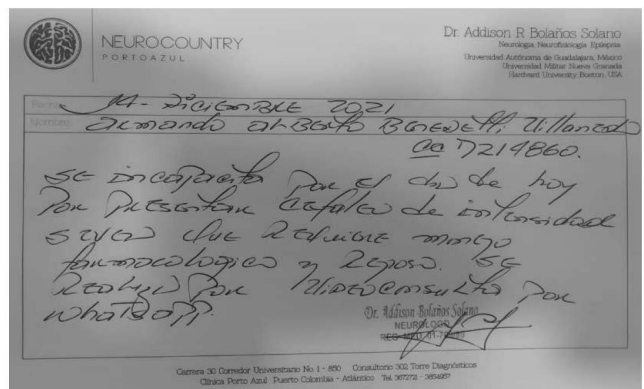 NEUROCOUNTRY
PORTOAZUL
Dr. Addison R Bolaños Solano
Neurología, Neurofisiología Epilepsia
Universidad Autónoma de Guadalajara, México
Universidad Militar Nueva Granada
Hardvard University, Boston, USA
Fecha: 14 - Diciembre 2021
Nombre: Armando Alberto Benedetti Villaneda
CC 7219860.
Se incapacita por el dia de hoy
por presentar cefalea de intensidad
severa que requiere manejo
farmacologico y reposo. Se
realizo por videoconsulta por
whatsapp.
Dr. Addison Bolaños Solano
NEUROLOGO
Carrera 30 Corredor Universitario No. 1 - 850 Consultorio 302 Torre Diagnósticos
Clínica Porto Azul Puerto Colombia - Atlántico Tel.